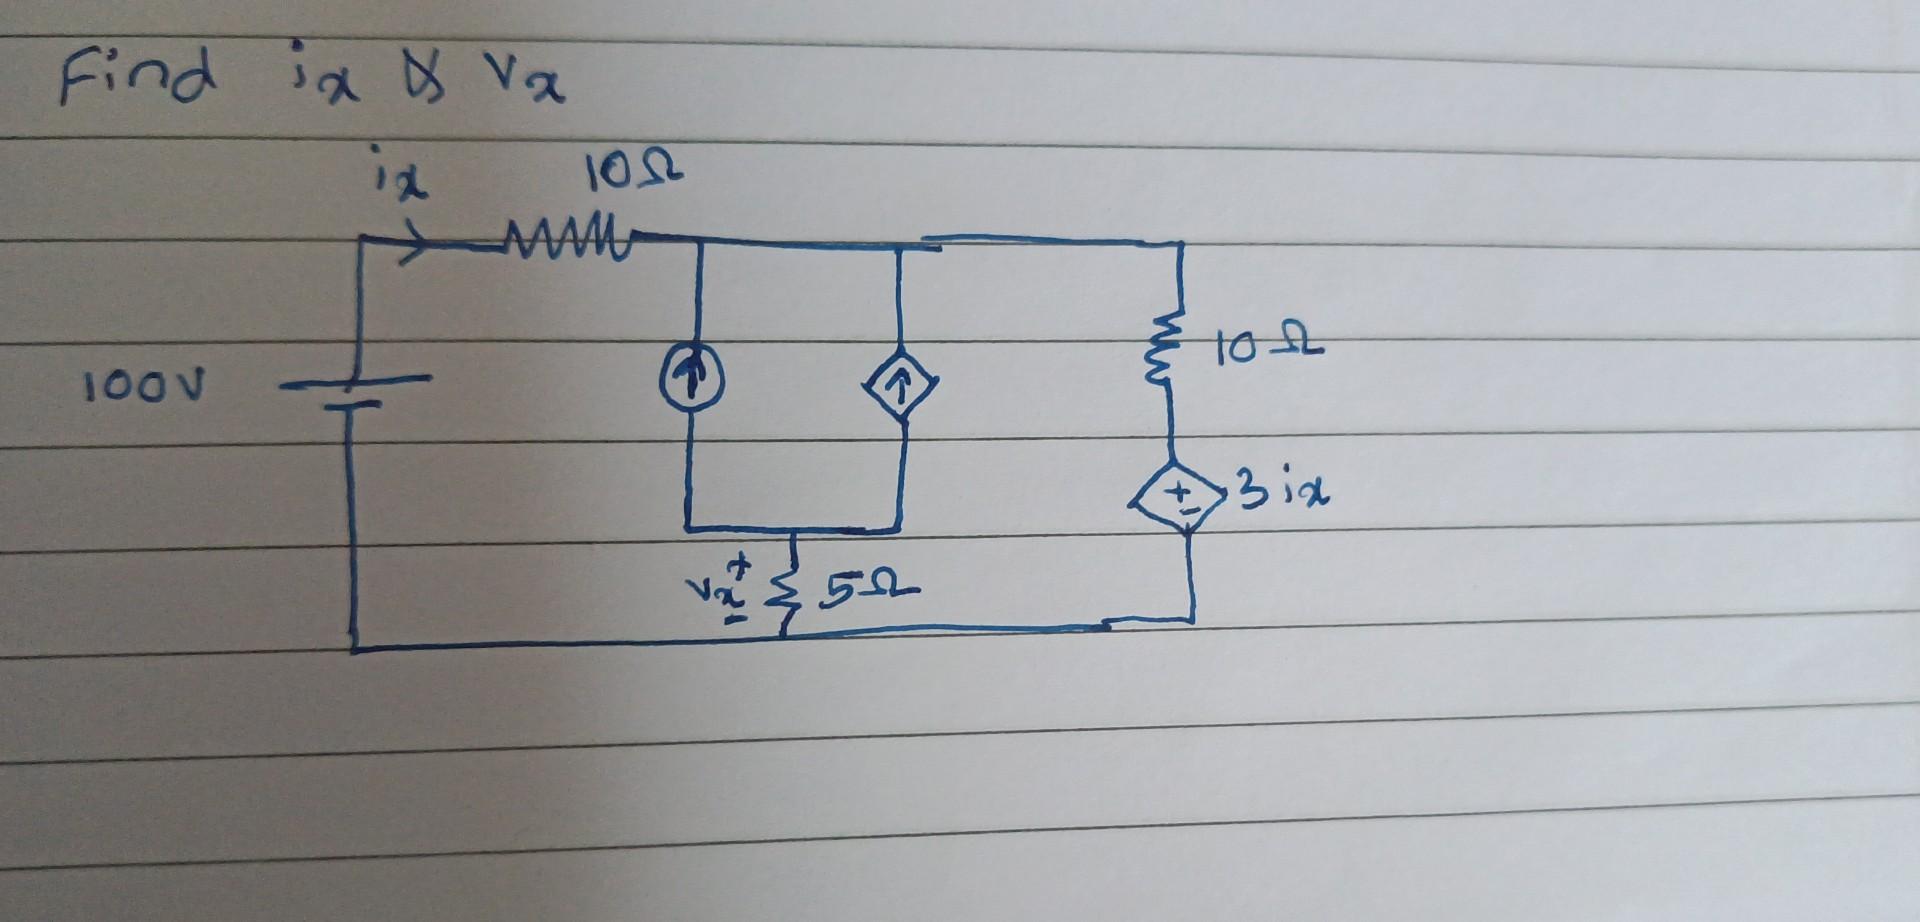 Find ix & vx
ix 10Ω
100V
10Ω
+
-
3 ix
vx + - 5Ω